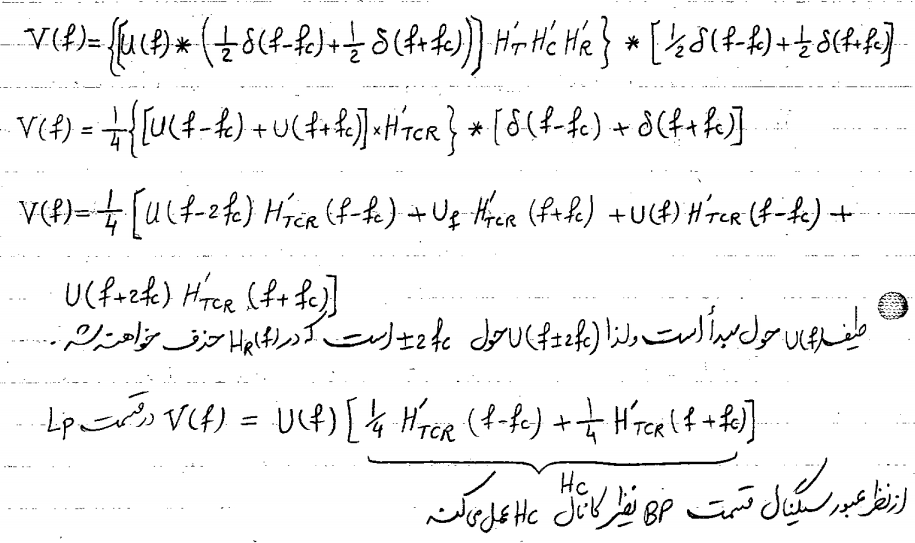 V(f) = {[U(f) * (½ δ(f-fc) + ½ δ(f+fc))] H'_T H'_C H'_R} * [½ δ(f-fc) + ½ δ(f+fc)]
V(f) = ¼ {[U(f-fc) + U(f+fc)] × H'_TCR} * [δ(f-fc) + δ(f+fc)]
V(f) = ¼ [U(f-2fc) H'_TCR (f-fc) + U_f H'_TCR (f+fc) + U(f) H'_TCR (f-fc) +
U(f+2fc) H'_TCR (f+fc)]
طیف U(f) حول مبدأ است ولذا U(f±2fc) حول ±2fc است که در H_R(f) حذف خواهند شد.
درقسمت Lp V(f) = U(f) [¼ H'_TCR (f-fc) + ¼ H'_TCR (f+fc)]
Hc
ازنظر عبور سیگنال قسمت BP نظیر کانال Hc عمل می‌کند